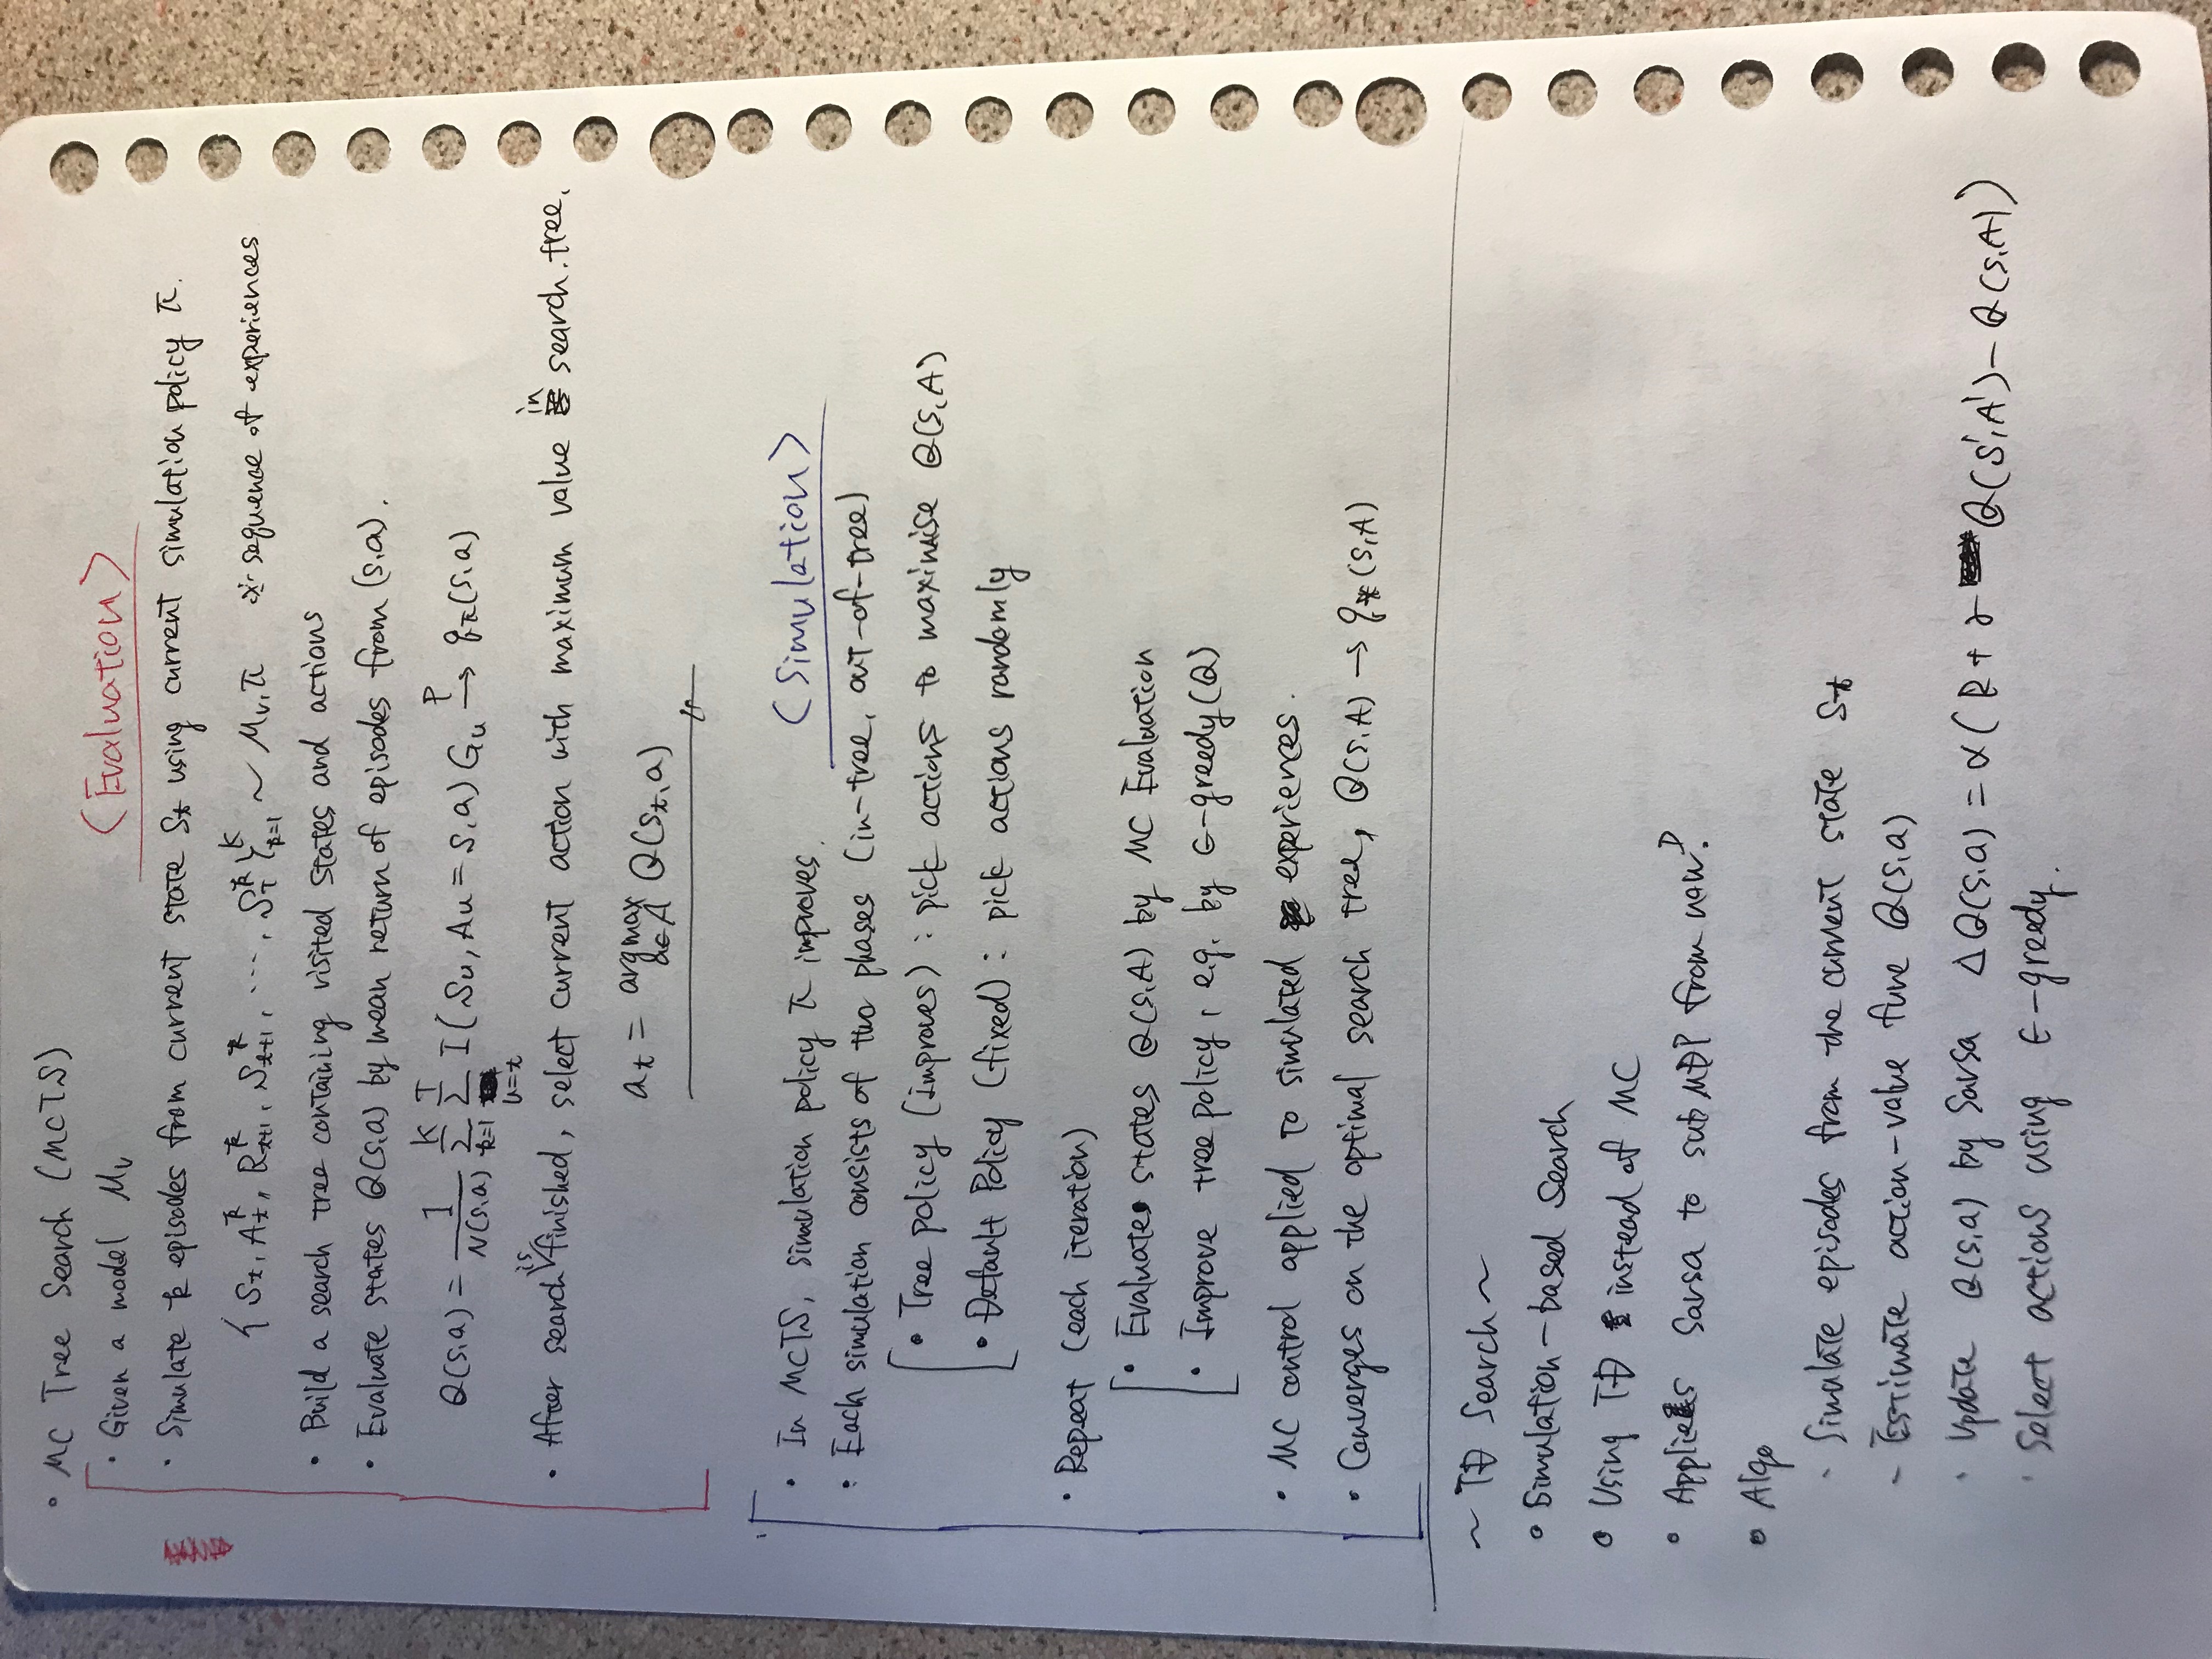 • MC Tree Search (MCTS)
<Evaluation>
• Given a model Mv
• Simulate k episodes from current state St using current simulation policy π.
{ St, At^k, Rt+1^k, St+1^k, ..., ST^k }k=1^K ~ Mv, π ※ sequence of experiences
• Build a search tree containing visited states and actions
• Evaluate states Q(s,a) by mean return of episodes from (s,a).
Q(s,a) = 1/N(s,a) Σk=1^K Σu=t^T I(Su, Au = s,a) Gu →^P qπ(s,a)
• After search is finished, select current action with maximum value in search tree.
at = argmax a∈A Q(st, a)
<Simulation>
• In MCTS, simulation policy π improves.
• Each simulation consists of two phases (in-tree, out-of-tree)
• Tree policy (improves) : pick actions to maximise Q(S,A)
• Default Policy (fixed) : pick actions randomly
• Repeat (each iteration)
• Evaluate states Q(S,A) by MC Evaluation
• Improve tree policy, e.g. by ε-greedy(Q)
• MC control applied to simulated experiences.
• Converges on the optimal search tree, Q(S,A) → q*(S,A)
~ TD Search ~
• Simulation-based Search
• Using TD instead of MC
• Applies Sarsa to sub MDP from now?
• Algo
- Simulate episodes from the current state St
- Estimate action-value func Q(s,a)
- Update Q(s,a) by Sarsa ΔQ(s,a) = α(R + γ Q(S',A') - Q(S,A))
- Select actions using ε-greedy.